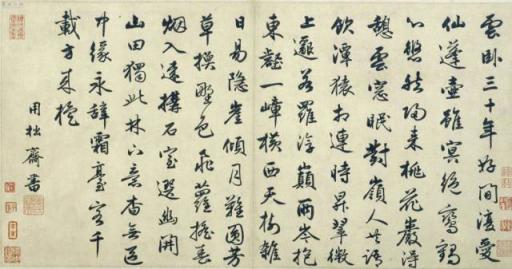 雲臥三十年好閒復愛
仙蓬壺雖冥絕鸞鶴
心悠然歸來桃花巖得
憩雲窗眠對嶺人共語
飲潭猿相連時昇翠微
上邈若羅浮巔兩岑抱
東壑一嶂橫西天樹雜
日易隱崖傾月難圓芳
草換野色飛蘿搖春
烟入遠搆石室選幽開
山田獨此林下意杳無區
中緣永辭霜臺客千
載方來旋
用拙齋書